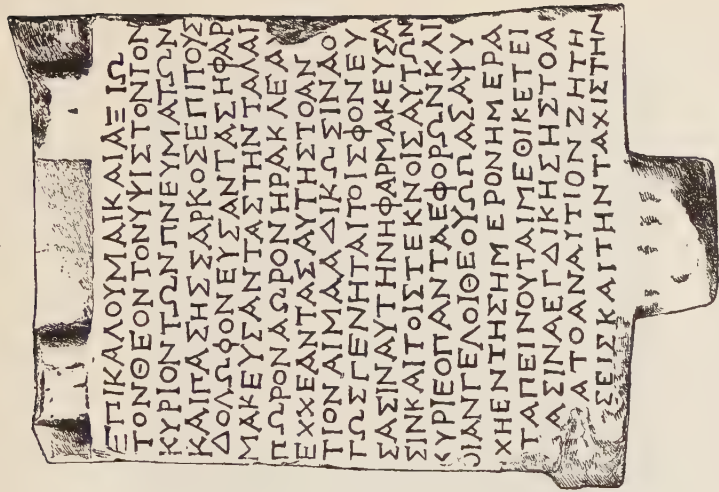 ΕΠΙΚΑΛΟΥΜΑΙΚΑΙΑΞΙΩ
ΤΟΝΘΕΟΝΤΟΝΥΨΙΣΤΟΝΤΟΝ
ΚΥΡΙΟΝΤΩΝΠΝΕΥΜΑΤΩΝ
ΚΑΙΠΑΣΗΣΣΑΡΚΟΣΕΠΙΤΟΙΣ
ΔΟΛΩΦΟΝΕΥΣΑΝΤΑΣΗΦΑΡ
ΜΑΚΕΥΣΑΝΤΑΣΤΗΝΤΑΛΑΙ
ΠΩΡΟΝΑΩΡΟΝΗΡΑΚΛΕΑΥ
ΕΧΧΕΑΝΤΑΣΑΥΤΗΣΤΟΑΝ
ΤΙΟΝΑΙΜΑΑΔΙΚΩΣΙΝΑΟ
ΤΩΣΓΕΝΗΤΑΙΤΟΙΣΦΟΝΕΥ
ΣΑΣΙΝΑΥΤΗΝΗΦΑΡΜΑΚΕΥΣΑ
ΣΙΝΚΑΙΤΟΙΣΤΕΚΝΟΙΣΑΥΤΩΝ
ΚΥΡΙΕΟΠΑΝΤΑΕΦΟΡΩΝΚΑΙ
ΟΙΑΝΓΕΛΟΙΘΕΟΥΩΠΑΣΑΨΥ
ΧΗΕΝΤΗΣΗΜΕΡΟΝΗΜΕΡΑ
ΤΑΠΕΙΝΟΥΤΑΙΜΕΘΙΚΕΤΕΙ
ΑΣΙΝΑΕΓΔΙΚΗΣΗΣΤΟΑ
ΑΤΟΑΝΑΥΤΙΟΝΖΗΤΗ
ΣΕΙΣΚΑΙΤΗΝΤΑΧΙΣΤΗΝ